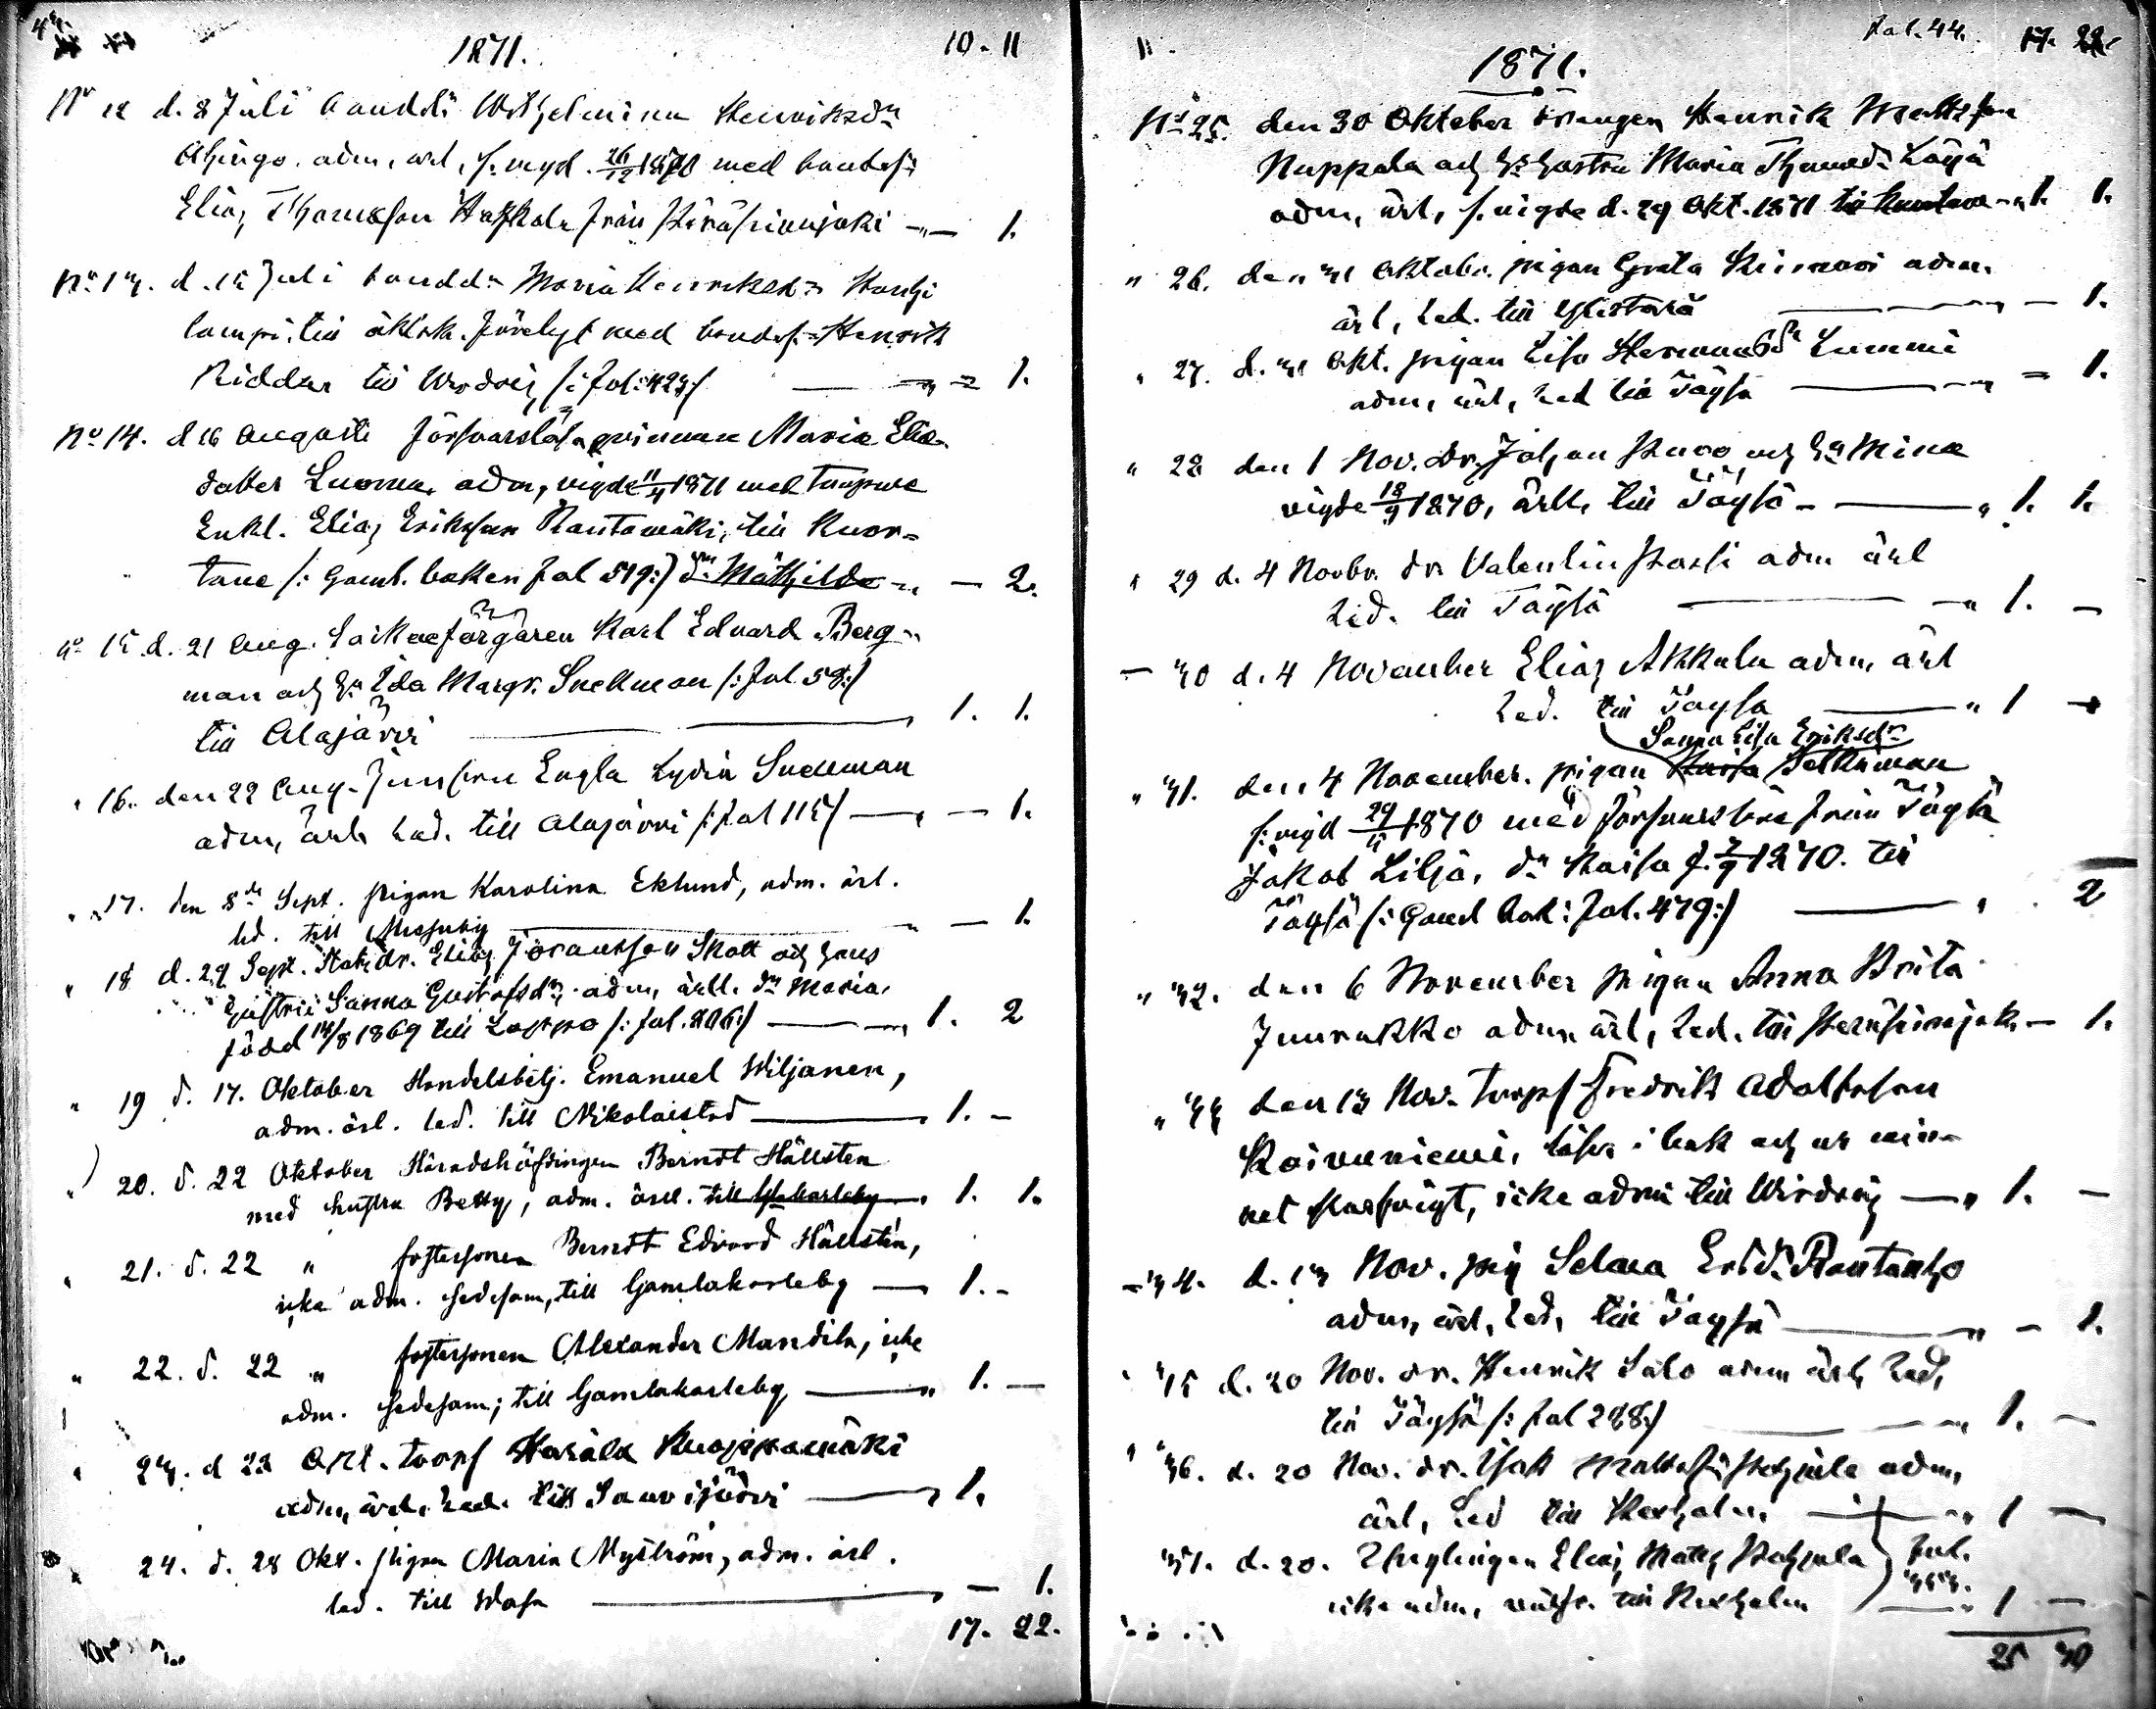 1871.
10-11
No 12 d. 8 Juli bondd: Wilhelmina Henriksdr
adm, ärl, f. vigd. 26/12 1870 med bondes:
Elias Thomasson från Peräseinäjoki -"- 1.
No 13. d. 15 Juli bondd: Maria Henriksdr Kauha
lampi, till äktsk. förelyst med bondes: Henrik
Riddar till Wirdois /: fol: 423:/ — " = 1.
No 14. d 16 Augusti försvarslösa qvinnan Maria Elia
dotter Luoma, adm, vigde 11/4 1871 med torpare
Enkl. Elias Eriksson Rautamäki, till Kuor=
tane /: Gamb. boken fol 519:/ dr Mathilda -" - 2.
No 15. d. 21 Aug. Karl Edvard Berg-
man och h: Ida Margr. Snellman /: fol 58:/
till Alajärvi — 1. 1.
" 16. den 22 Aug. Engla Lydia Snellman
adm, ärl. led. till Alajärvi /: fol 115/ — " — 1.
" 17. den 8de Sept. pigan Karolina Eklund, adm. ärl.
led. till — " — 1.
" 18 d. 29 Sept. Elias Göransson Skott och hans
hustru Sanna Gustafsdr adm, ärl. dr Maria
född 14/8 1869 till Lappo /: fol. 206:/ — " 1. 2
" 19 d. 17. Oktober Handelsbetj. Emanuel Wiljanen,
adm. ärl. led. till Nikolaistad — 1. -
" 20. d. 22 Oktober Häradshöfdingen Berndt Hällsten
med hustru Betty, adm. ärl. till Glakarleby — 1. 1.
" 21. d. 22 " fostersonen Berndt Edvard Hällstén,
icke adm. hedesam, till Gamlakarleby — 1. -
" 22. d. 22 " fostersonen Alexander Mandila, icke
adm. hedesam; till Gamlakarleby — " 1. —
" 23. d 23 Okt. torpf Knappamäki
adm, ärl. led. till Saarijärvi — " 1.
24. d. 28 Okt. pigan Maria Nyström, adm. ärl.
led. till Wasa — — 1.
17. 22.
11.
1871.
fol. 44. 17. 22.
No 25. den 30 Oktober drengen Henrik Mattsson
Nuppala och hs hustru Maria Thomasd: Löyä
adm, ärl, f. vigde d. 29 Okt. 1871 till Kuortane -" 1. 1.
" 26. den 31 Oktobr. pigan Greta adm.
ärl, led. till Ylistaro — " — 1.
" 27. d. 31 Okt. pigan Lisa Hermansdr Lummi
adm, ärl, led till Töysä — " = 1.
" 28 den 1 Nov. dr. Johan och hn Mina
vigde 18/9 1870, ärll. till Töysä - — " 1. 1.
" 29 d. 4 Novbr. dr. Valentin adm ärl
led. till Töysä — " 1. —
— 30 d. 4 November Elias Akkala adm, ärl
led. till Töysä — " 1 —
Sanna Lisa Eriksdr
" 31. den 4 November. pigan Kaisa
f. vigd 29/11 1870 med från Töysä
Jakob Lilja, dr Kaisa f. 7/9 1870. till
Töysä /: Gaml bok: fol. 479:/ — " 2
" 32. den 6 November pigan Anna Brita
Juurakko adm, ärl, led. till Peräseinäjok. — 1.
" 33 den 13 Nov. torpf Fredrik Adolfsson
Koivuniemi, läser i bok och ur min-
net icke adm till Wirdois — " 1. —
— 34. d. 13 Nov. pig Selma Ersd: Rautanho
adm, ärl, led, till Töysä — " — 1.
" 35 d. 20 Nov. dr. Henrik Salo adm ärl, led,
till Töysä /: fol 288:/ — " 1. —
" 36. d. 20 Nov. dr. Isak Pohjola adm,
ärl, led till Kexholm — " 1 —
37. d. 20. Ynglingen Elias Matts Pohjola } fol.
icke adm, till Kexholm 353. — " 1 —
25 30